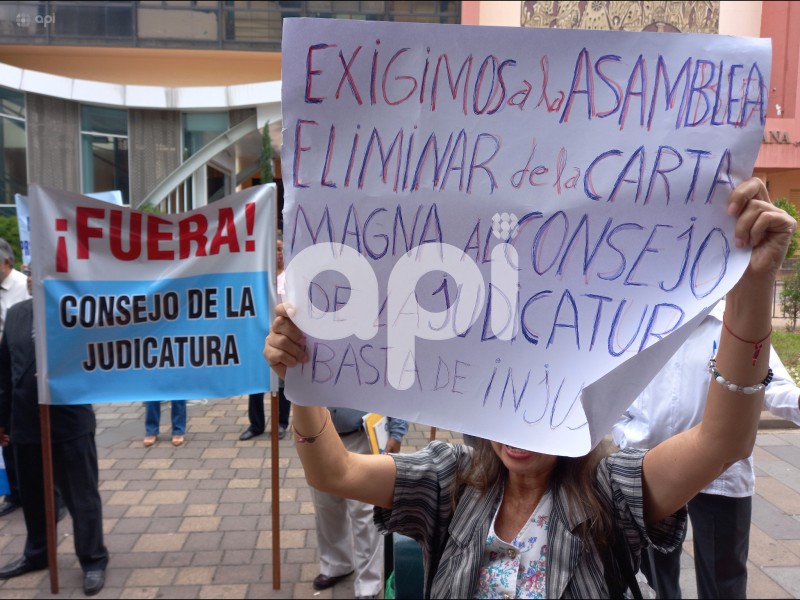 api
EXIGIMOS a la ASAMBLEA
ELIMINAR de la CARTA
MAGNA AL CONSEJO
DE LA JUDICATUR
BASTA DE INJUS
¡FUERA!
CONSEJO DE LA
JUDICATURA
api
ANA